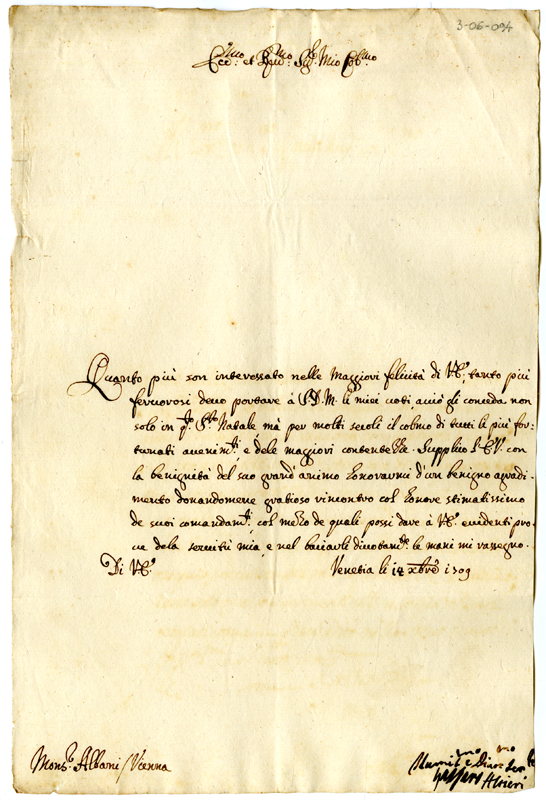 3-06-094
Ecc.mo et Rev.mo Sig.r Mio Col.mo
Quanto più son interessato nelle Maggiori felicità di V.E., tanto più
fervorosi devo portare à S.D.M. li miei voti, acciò gli conceda non
solo in q.to S.to Natale mà per molti secoli il colmo di tutti li più for-
tunati avenim.ti, e dele maggiori contentezze. Supplico l'E.V. con
la benignità del suo grand'animo honorarmi d'un benigno agradi-
mento donandomene gratioso rincontro col honore stimatissimo
de suoi comandam.ti, col mezo de quali possi dare à V.E. evidenti pro-
ve dela servitù mia, e nel baciarli divotam.te le mani mi rassegno.
Di V.E.
Venetia li 14 xbre 1709
Mons.r Albani / Vienna
Humil.mo e Divot.mo Ser.re
Altieri